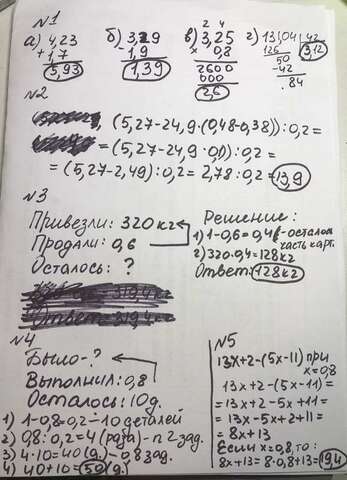 №1
а) 4,23
+ 1,7
5,93
б) 3,29
- 1,9
1,39
2 4
в) 3,25
х 0,8
2600
000
2,6
г) 13,04 42
126 3,12
50
-42
84
№2
(5,27-24,9·(0,48-0,38)):0,2=
=(5,27-24,9·0,1):0,2=
=(5,27-2,49):0,2=2,78:0,2=13,9
№3
Привезли: 320 кг
Продали: 0,6
Осталось: ?
Решение:
1) 1-0,6=0,4 - осталась
часть карт.
2) 320·0,4=128кг
Ответ: 128кг
№4
Было-?
Выполнил: 0,8
Осталось: 10д.
1) 1-0,8=0,2 - 10 деталей
2) 0,8:0,2=4 (раза) - п 2 зад.
3) 4·10=40(д.) - 0,8 зад.
4) 40+10=50(д.)
№5
13х+2-(5х-11) при
х=0,8
13х+2-(5х-11)=
=13х+2-5х+11=
=13х-5х+2+11=
=8х+13
Если х=0,8, то:
8х+13=8·0,8+13=19,4